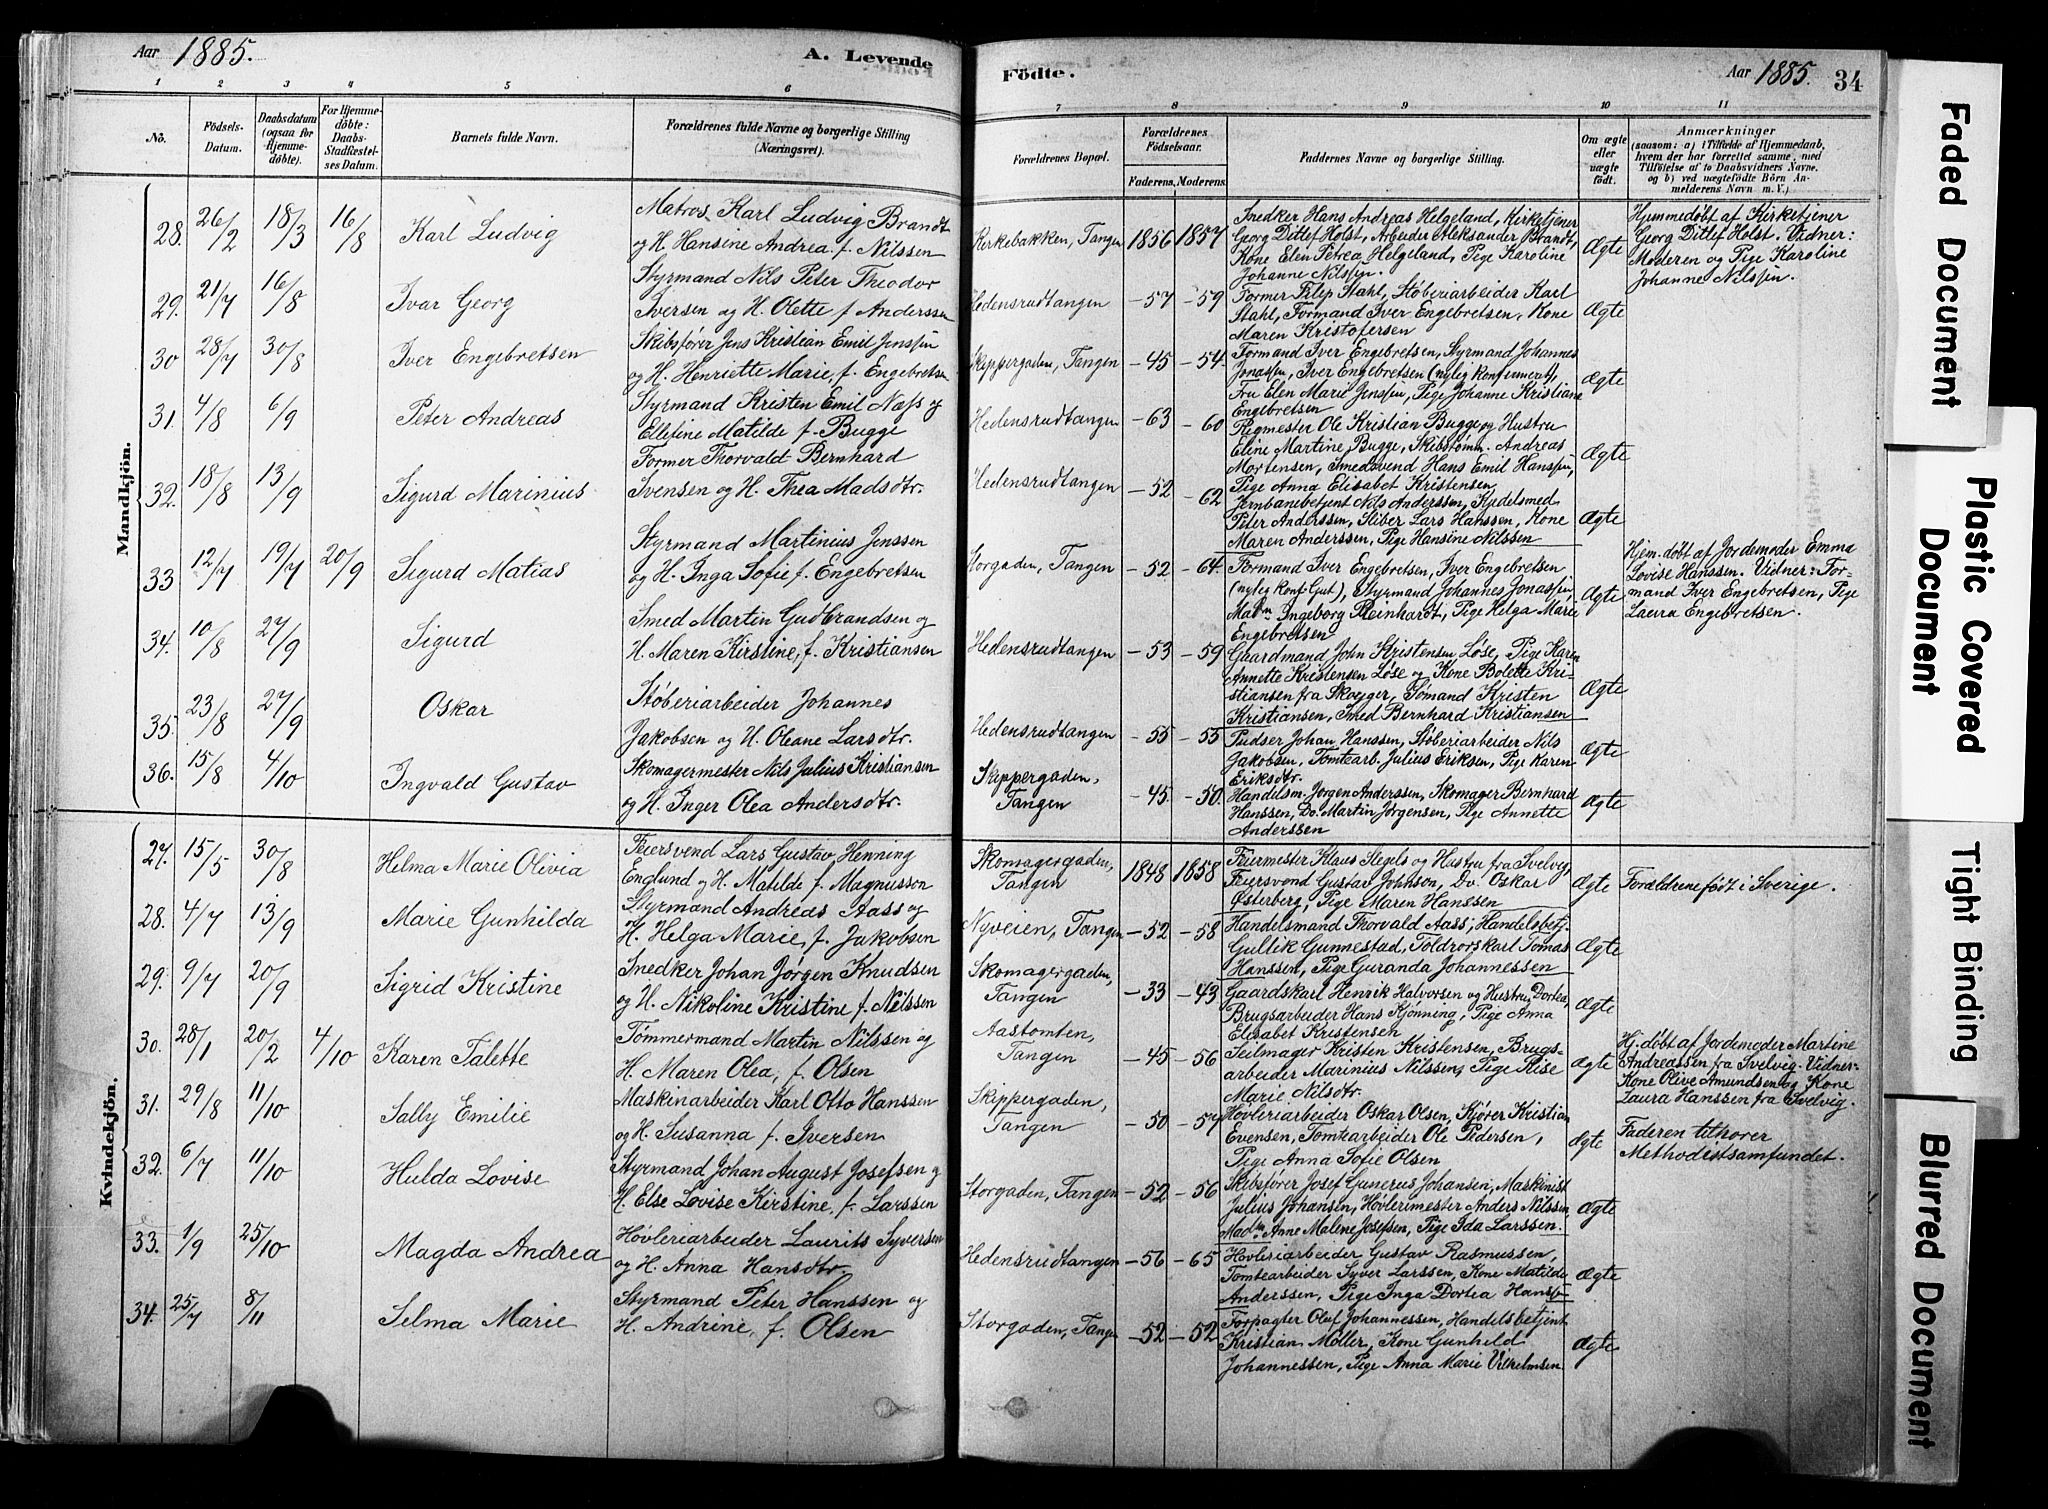 Aar 1885.
A. Levende
Fødte.
Aar 1885.
34
1 2 3 4 5 6 7 8 9 10 11
No.
Födsels-
Datum.
Daabsdatum
(ogsaa for
Hjemme-
døbte).
For Hjemme-
døbte:
Daabs-
Stadfæstel-
ses Datum.
Barnets fulde Navn.
Forældrenes fulde Navne og borgerlige Stilling
(Næringsvei).
Forældrenes Bopæl.
Forældrenes
Födselsaar.
Faderens. Moderens.
Faddernes Navne og borgerlige Stilling.
Om ægte
eller
uægte
født.
Anmærkninger
(saasom: a) i Tilfælde af Hjemmedaab,
hvem der har forrettet samme, med
Tilföielse af to Daabsvidners Navne.
og b) ved uægtefödte Börn An-
melderens Navn m. V.)
Mandkjön.
28. 26/2 18/3 16/8 Karl Ludvig
Matros Karl Ludvig Brandt
og H. Hansine Andrea f. Nilssen
Kirkebakken, Tangen 1856 1857
Snedker Hans Andreas Helgeland, Kirketjener
Georg Ditlef Holst, Arbeider Aleksander Brandt,
Kone Elen Petrea Helgeland, Pige Karoline
Johanne Nilssen.
Ægte
Hjemmedøbt af Kirketjener
Georg Ditlef Holst. Vidner:
Moderen og Pige Karoline
Johanne Nilssen.
29. 21/7 16/8 Ivar Georg
Styrmand Nils Peter Theodor
Iversen og H. Olette f. Anderssen
Hedensrudtangen -57 -59
Former Filip Stahl, Støberiarbeider Karl
Stahl, Formand Iver Engebretsen, Kone
Maren Kristofersen
Ægte
30 28/7 30/8 Iver Engebretsen
Skibsfører Jens Kristian Emil Jenssen
og H. Henriette Marie, f. Engebretsen
Skippergaden, Tangen -45 -54
Formand Iver Engebretsen, Styrmand Johannes
Jonassen, Iver Engebretsen (nyleg konfirmeret),
Fru Elen Marie Jenssen, Pige Johanne Kristiane
Engebretsen
Ægte
31. 4/8 6/9 Peter Andreas
Styrmand Kristen Emil Næss og
Ellefine Matilde f. Bugge
Hedensrudtangen -63 -60
Pigmester Ole Kristian Bugge og Hustru
Eline Martine Bugge, Skibstømm. Andreas
Mortensen, Smedsvend Hans Emil Hanssen,
Pige Anna Elisabet Kristensen
Ægte
32. 18/8 13/9 Sigurd Marinius
Former Thorvald Bernhard
Svensen og H. Thea Madsdtr.
Hedensrudtangen -52 -62
Jernbanebetjent Nils Anderssen, Kjedelsmed
Peter Anderssen, Sliber Lars Hanssen, Kone
Maren Anderssen, Pige Hansine Nilssen
Ægte
33 12/7 19/7 20/9 Sigurd Matias
Styrmand Martinius Jenssen
og H. Inga Sofie f. Engebretsen
Storgaden, Tangen -52 -64
Formand Iver Engebretsen, Iver Engebretsen
(nyleg konf. Gut), Styrmand Johannes Jonassen,
Madm Ingeborg Reinhardt, Pige Helga Marie
Engebretsen
Ægte
Hjem. døbt af Jordemoder Emma
Lovise Hanssen. Vidner: For-
mand Iver Engebretsen, Pige
Laura Engebretsen.
34. 10/8 27/9 Sigurd
Smed Martin Gudbrandsen og
H. Maren Kirstine, f. Kristiansen
Hedensrudtangen -53 -59
Gaardmand John Kristensen Løse, Pige Karen
Annette Kristensen Løse og Kone Bolette Kri-
stiansen fra Skoger, Sømand Kristen
Kristiansen, Smed Bernhard Kristiansen
Ægte
35. 23/8 27/9 Oskar
Støberiarbeider Johannes
Jakobsen og H. Oleane Larsdtr.
Hedensrudtangen -55 -55
Pudser Johan Hanssen, Støberiarbeider Nils
Jakobsen, Tomtearb. Julius Eriksen, Pige Karen
Eriksdtr.
Ægte
36. 15/8 4/10 Ingvald Gustav
Skomagermester Nils Julius Kristiansen
og H. Inger Olea Andersdtr.
Skippergaden,
Tangen -45. -50.
Handelsm. Jørgen Anderssen, Skomager Bernhard
Hanssen, Do. Martin Jørgensen, Pige Annette
Anderssen
Ægte
Kvindekjön.
27. 15/5 30/8 Helma Marie Olivia
Feiersvend Lars Gustav Henning
Englund og H. Matilde f. Magnusson
Skomagergaden,
Tangen 1848 1858
Feiermester Klaus Slegels og Hustru fra Svelvig,
Feiersvend Gustav Johnson, Do. Oskar
Østerberg, Pige Maren Hanssen
Ægte
Forældrene født i Sverige.
28. 4/7 13/9 Marie Gunhilda
Styrmand Andreas Aass og
H. Helga Marie, f. Jakobsen
Nyveien, Tangen -52 -58
Handelsmand Thorvald Aass, Handelsbetj.
Gullik Gunnestad, Toldrorskarl Tomas
Hanssen, Pige Guranda Johannessen
Ægte
29. 9/7 20/9 Sigrid Kristine
Snedker Johan Jørgen Knudsen
og H. Nikoline Kristine f. Nilssen
Skomagergaden,
Tangen -33 -43
Gaardskarl Henrik Halvorsen og Hustru Dortea,
Brugsarbeider Hans Kjønning, Pige Anna
Elisabet Kristensen
Ægte
30. 28/1 20/2 4/10 Karen Talette
Tømmermand Martin Nilssen og
H. Maren Olea, f. Olsen
Aastomten,
Tangen -45 -56
Seilmager Kristen Kristensen, Brugs-
arbeider Marinius Nilssen, Pige Rise
Marie Nilsdtr.
Ægte
Hj. døbt af Jordemoder Martine
Andreassen fra Svelvig. Vidner:
Kone Olive Amundsen og Kone
Laura Hanssen fra Svelvig.
31. 29/8 11/10 Sally Emilie
Maskinarbeider Karl Otto Hanssen
og H. Susanna f. Iversen
Skippergaden,
Tangen -50 -57
Høvleriarbeider Oskar Olsen, Kjører Kristian
Evensen, Tomtearbeider Ole Pedersen,
Pige Anna Sofie Olsen
Ægte
Faderen tilhører
Methodistsamfundet.
32. 6/7 11/10 Hulda Lovise
Styrmand Johan August Josefsen og
H. Else Lovise Kirstine, f. Larssen
Storgaden, Tangen -52 -56
Skibsfører Josef Gunerus Johansen, Maskinist
Julius Johansen, Høvlerimester Anders Nilssen
Madm Anne Malene Josefsen, Pige Ida Larssen.
Ægte
33. 1/9 25/10 Magda Andrea
Høvleriarbeider Laurits Syversen
og H. Anna Hansdtr.
Hedensrudtangen -56 -65
Høvleriarbeider Gustav Rasmussen,
Tomtearbeider Syver Larssen, Kone Matilde
Anderssen, Pige Inga Dortea Hanss-
Ægte
34. 25/7 8/11 Selma Marie
Styrmand Peter Hanssen og
H. Andrine, f. Olsen
Storgaden, Tangen -52 -52
Forpagter Oluf Johannessen, Handelsbetjent
Kristian Møller, Kone Gunhild
Johannessen, Pige Anna Marie Vilhelmsen
Ægte
Faded Document
Plastic Covered
Document
Tight Binding
Blurred Document